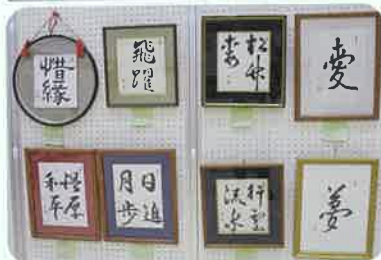 惜縁
飛躍
松竹
梅
愛
和平
日進
月歩
行雲
流水
夢